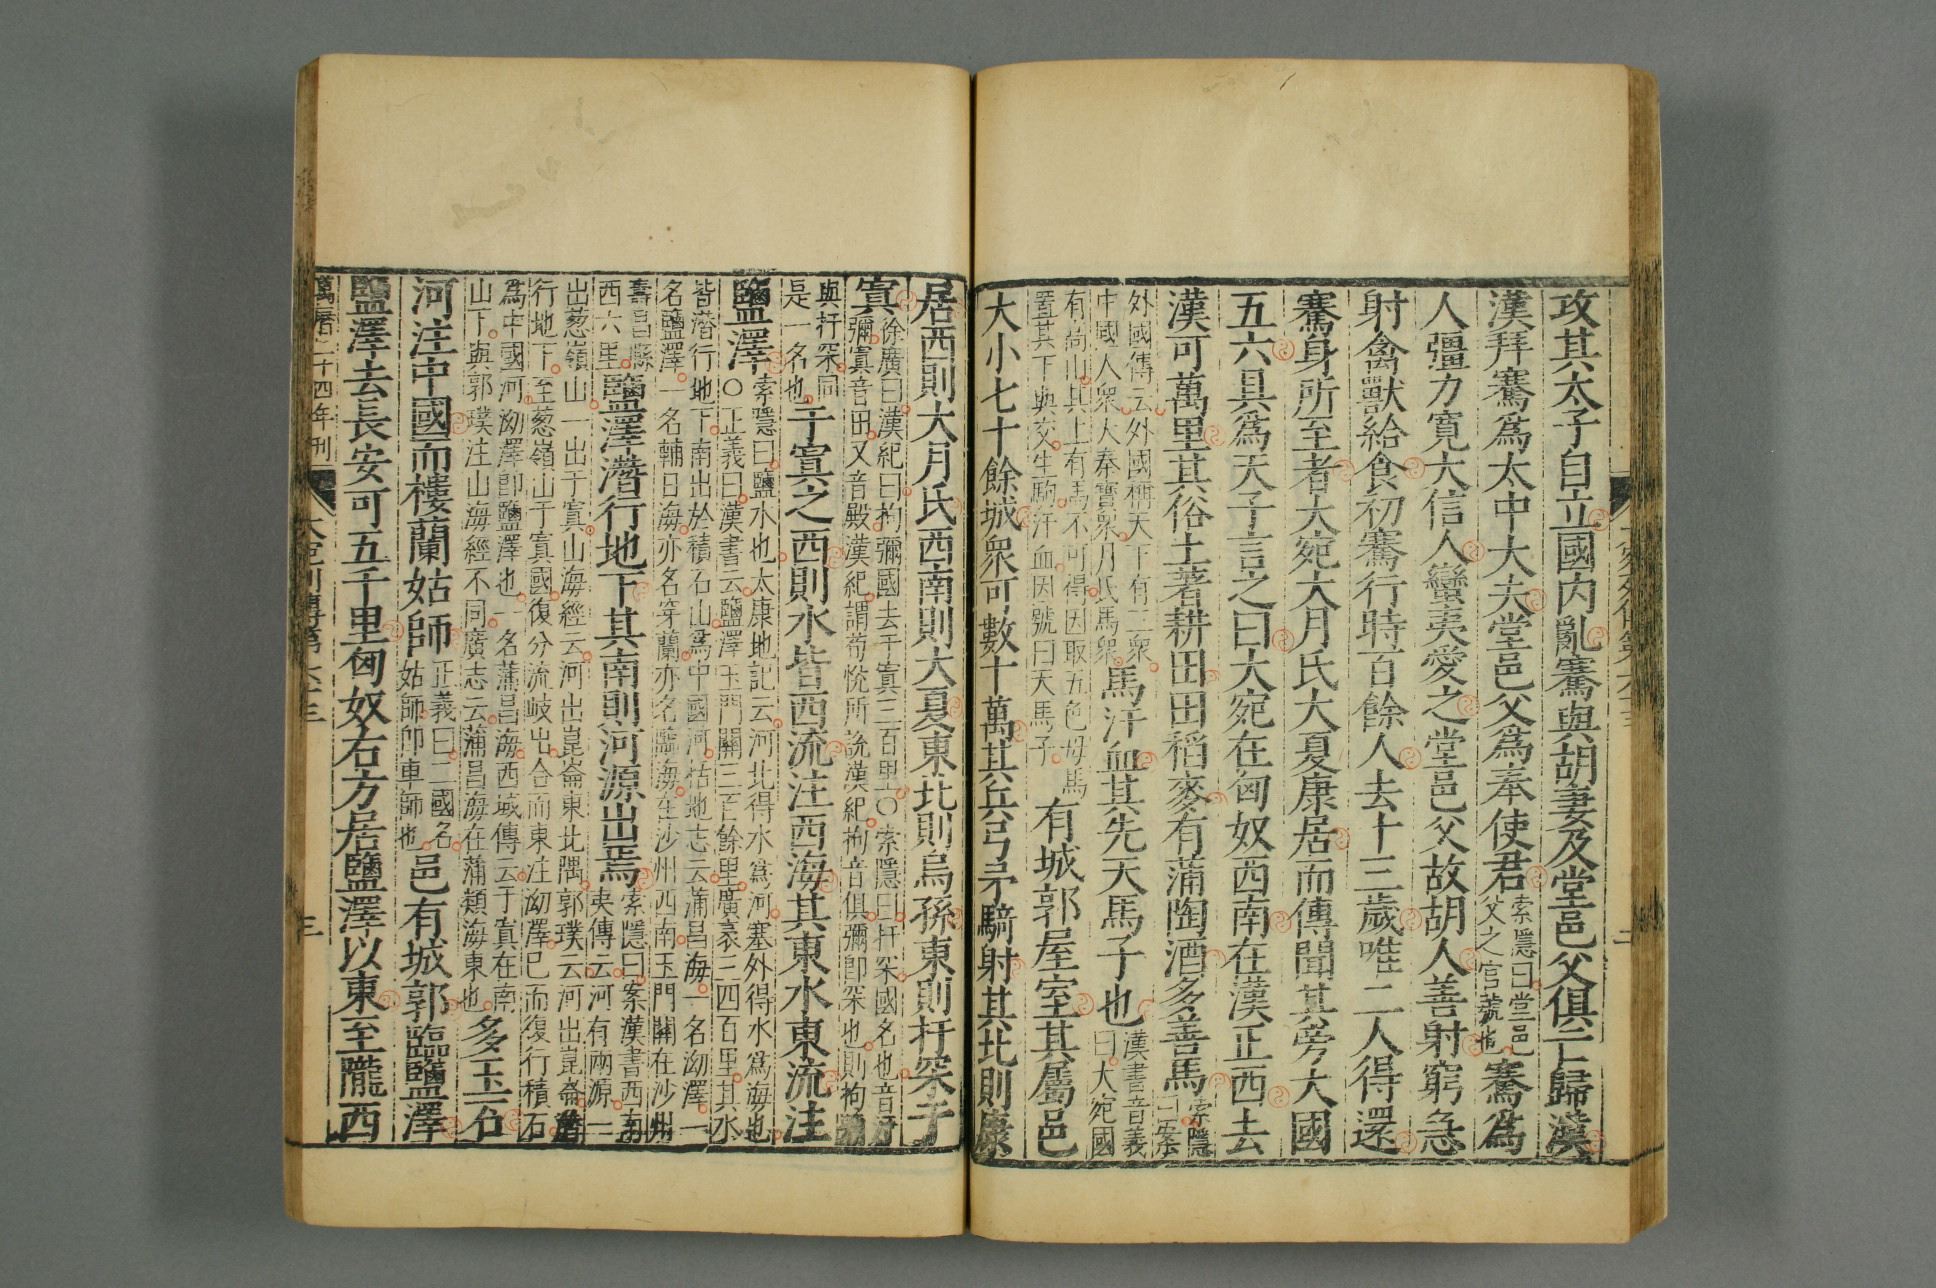 攻其太子自立國內亂騫與胡妻及堂邑父俱亡歸漢
漢拜騫為太中大夫堂邑父為奉使君索隱曰堂邑父之官號也騫為
人彊力寬大信人蠻夷愛之堂邑父故胡人善射窮急
射禽獸給食初騫行時百餘人去十三歲唯二人得還
騫身所至者大宛大月氏大夏康居而傳聞其旁大國
五六具為天子言之曰大宛在匈奴西南在漢正西去
漢可萬里其俗土著耕田田稻麥有蒲陶酒多善馬索隱曰案
外國傳云外國稱天下有三衆中國人衆大秦寶衆月氏馬衆馬汗血其先天馬子也漢書音義曰大宛國
有高山其上有馬不可得因取五色母馬置其下與交生駒汗血因號曰天馬子有城郭屋室其屬邑
大小七十餘城衆可數十萬其兵弓矛騎射其北則康
居西則大月氏西南則大夏東北則烏孫東則扞罙于
窴徐廣曰漢紀曰拘彌國去于窴三百里○索隱曰扞罙國名也音汙彌窴音田又音殿漢紀謂荀悅所說漢紀拘音俱彌即罙也則拘彌
與扞罙同是一名也于窴之西則水皆西流注西海其東水東流注
鹽澤索隱曰鹽水也太康地記云河北得水為河塞外得水為海也○正義曰漢書云鹽澤玉門關三百餘里廣袤三四百里其水
皆潛行地下南出於積石山為中國河括地志云蒲昌海一名泑澤一名鹽澤一名輔日海亦名穿蘭亦名臨海在沙州西南玉門關在沙州
壽昌縣西六里鹽澤潛行地下其南則河源出焉索隱曰案漢書西南夷傳云河有兩源一
出葱嶺山一出于窴山海經云河出崑崙東北隅郭璞云河出崑崙潛行地下至葱嶺山于窴國復分流岐出合而東注泑澤已而復行積石
為中國河泑澤即鹽澤也一名蒲昌海西域傳云于窴在南山下與郭璞注山海經不同廣志云蒲昌海在蒲類海東也多玉石
河注中國而樓蘭姑師正義曰二國名姑師即車師也邑有城郭臨鹽澤
鹽澤去長安可五千里匈奴右方居鹽澤以東至隴西
萬曆二十四年刊 大宛列傳第六十三 三